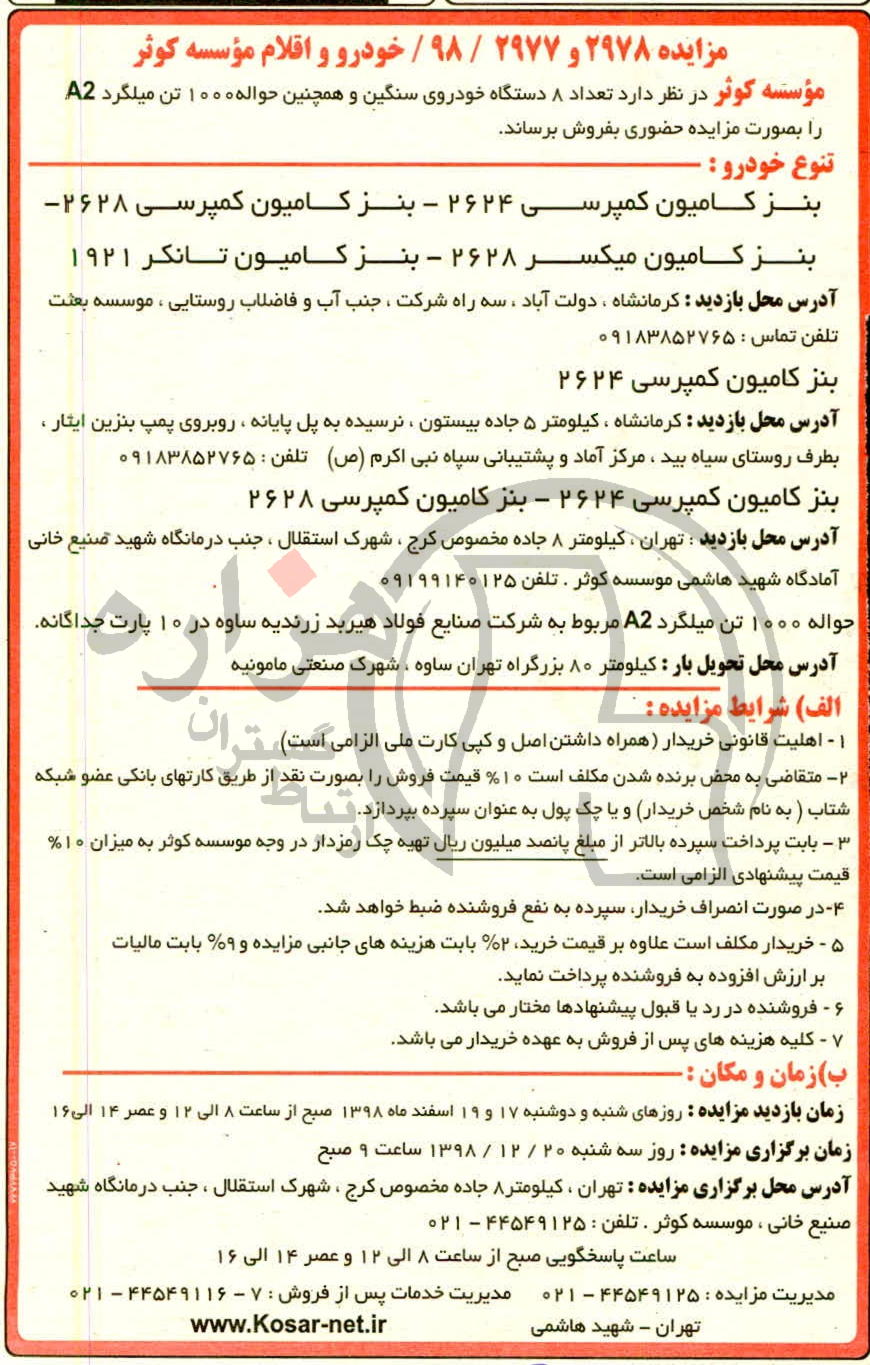 مزایده ۲۹۷۸ و ۲۹۷۷ / ۹۸ / خودرو و اقلام مؤسسه کوثر
مؤسسه کوثر در نظر دارد تعداد ۸ دستگاه خودروی سنگین و همچنین حواله ۱۰۰۰ تن میلگرد A2
را بصورت مزایده حضوری بفروش برساند.
تنوع خودرو :
بنز کامیون کمپرسی ۲۶۲۴ – بنز کامیون کمپرسی ۲۶۲۸–
بنز کامیون میکسر ۲۶۲۸ – بنز کامیون تانکر ۱۹۲۱
آدرس محل بازدید : کرمانشاه ، دولت آباد ، سه راه شرکت ، جنب آب و فاضلاب روستایی ، موسسه بعثت
تلفن تماس : ۰۹۱۸۳۸۵۲۷۶۵
بنز کامیون کمپرسی ۲۶۲۴
آدرس محل بازدید : کرمانشاه ، کیلومتر ۵ جاده بیستون ، نرسیده به پل پایانه ، روبروی پمپ بنزین ایثار ،
بطرف روستای سیاه بید ، مرکز آماد و پشتیبانی سپاه نبی اکرم (ص) تلفن : ۰۹۱۸۳۸۵۲۷۶۵
بنز کامیون کمپرسی ۲۶۲۴ – بنز کامیون کمپرسی ۲۶۲۸
آدرس محل بازدید : تهران ، کیلومتر ۸ جاده مخصوص کرج ، شهرک استقلال ، جنب درمانگاه شهید صنیع خانی
آمادگاه شهید هاشمی موسسه کوثر . تلفن ۰۹۱۹۹۱۴۰۱۲۵
حواله ۱۰۰۰ تن میلگرد A2 مربوط به شرکت صنایع فولاد هیربد زرندیه ساوه در ۱۰ پارت جداگانه.
آدرس محل تحویل بار : کیلومتر ۸۰ بزرگراه تهران ساوه ، شهرک صنعتی مامونیه
الف) شرایط مزایده :
۱- اهلیت قانونی خریدار (همراه داشتن اصل و کپی کارت ملی الزامی است)
۲- متقاضی به محض برنده شدن مکلف است ۱۰% قیمت فروش را بصورت نقد از طریق کارتهای بانکی عضو شبکه
شتاب ( به نام شخص خریدار) و یا چک پول به عنوان سپرده بپردازد.
۳ – بابت پرداخت سپرده بالاتر از مبلغ پانصد میلیون ریال تهیه چک رمزدار در وجه موسسه کوثر به میزان ۱۰%
قیمت پیشنهادی الزامی است.
۴-در صورت انصراف خریدار، سپرده به نفع فروشنده ضبط خواهد شد.
۵ - خریدار مکلف است علاوه بر قیمت خرید، ۲% بابت هزینه های جانبی مزایده و ۹% بابت مالیات
بر ارزش افزوده به فروشنده پرداخت نماید.
۶ - فروشنده در رد یا قبول پیشنهادها مختار می باشد.
۷ - کلیه هزینه های پس از فروش به عهده خریدار می باشد.
ب)زمان و مکان :
زمان بازدید مزایده : روزهای شنبه و دوشنبه ۱۷ و ۱۹ اسفند ماه ۱۳۹۸ صبح از ساعت ۸ الی ۱۲ و عصر ۱۴ الی۱۶
زمان برگزاری مزایده : روز سه شنبه ۲۰ / ۱۲ / ۱۳۹۸ ساعت ۹ صبح
آدرس محل برگزاری مزایده : تهران ، کیلومتر۸ جاده مخصوص کرج ، شهرک استقلال ، جنب درمانگاه شهید
صنیع خانی ، موسسه کوثر . تلفن : ۴۴۵۴۹۱۲۵ – ۰۲۱
ساعت پاسخگویی صبح از ساعت ۸ الی ۱۲ و عصر ۱۴ الی ۱۶
مدیریت مزایده : ۴۴۵۴۹۱۲۵ – ۰۲۱ مدیریت خدمات پس از فروش : ۷ – ۴۴۵۴۹۱۱۶ – ۰۲۱
تهران – شهید هاشمی www.Kosar-net.ir
هزاره
گستران
ارتباط